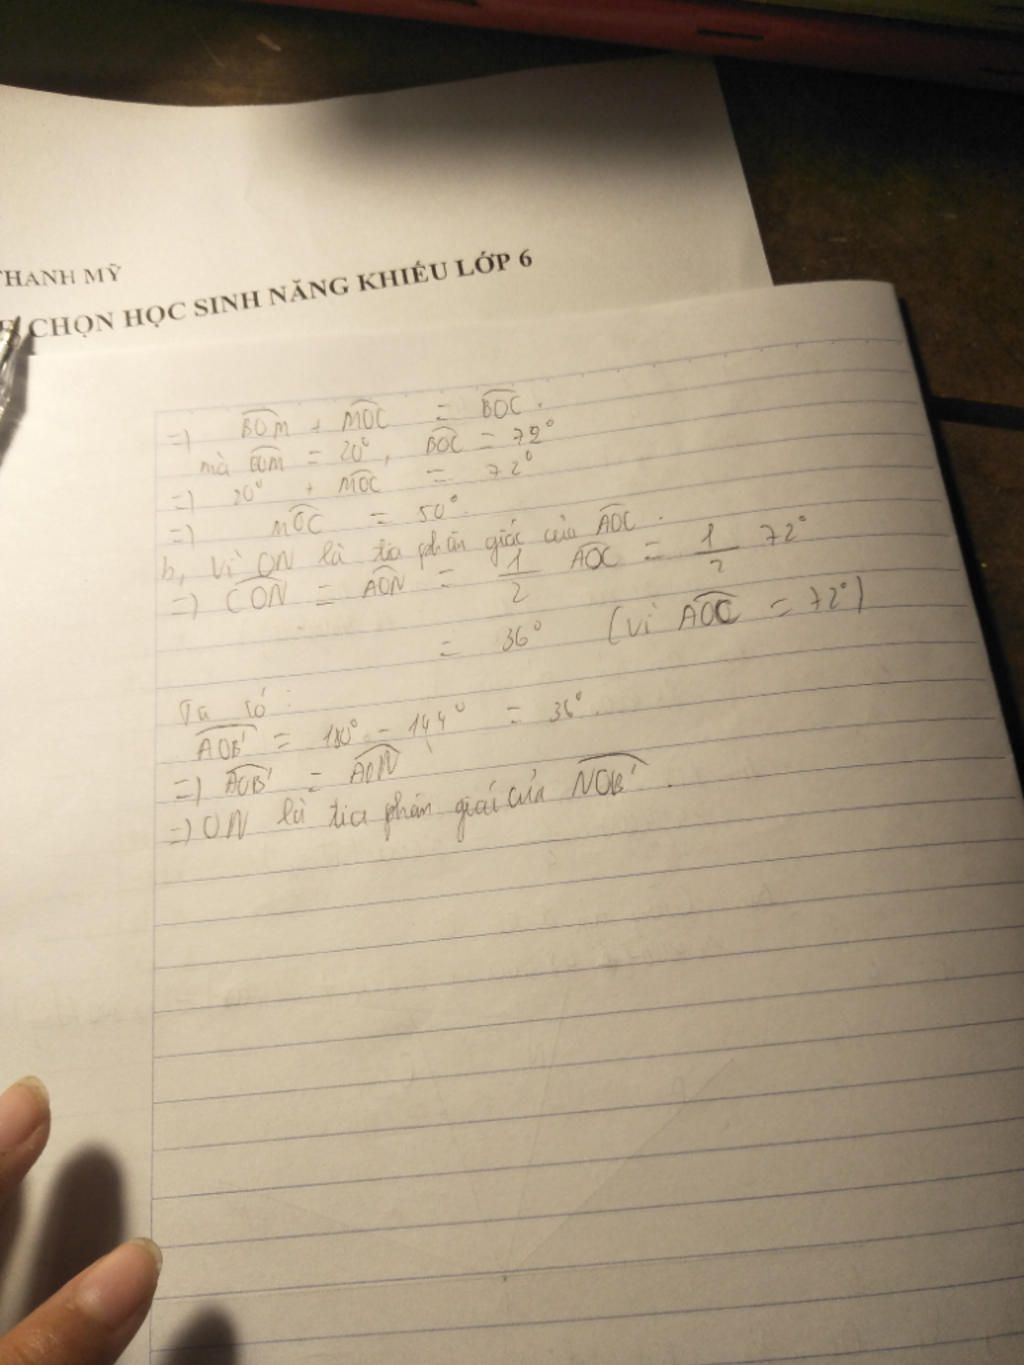 THANH MỸ
CHỌN HỌC SINH NĂNG KHIẾU LỚP 6
=) BOM + MOC = BOC.
mà BOM = 20°, BOC = 72°
=) 20° + MOC = 72°
=) MOC = 50°.
b, Vì ON là tia phân giác của AOC.
=) CON = AON = 1/2 AOC = 1/2 72°
= 36° (vì AOC = 72°)
Ta có:
AOB' = 180° - 144° = 36°.
=) AOB' = AON
=) ON là tia phân giác của NOB'.